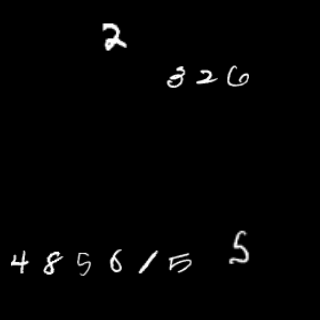 2
326
485615 5